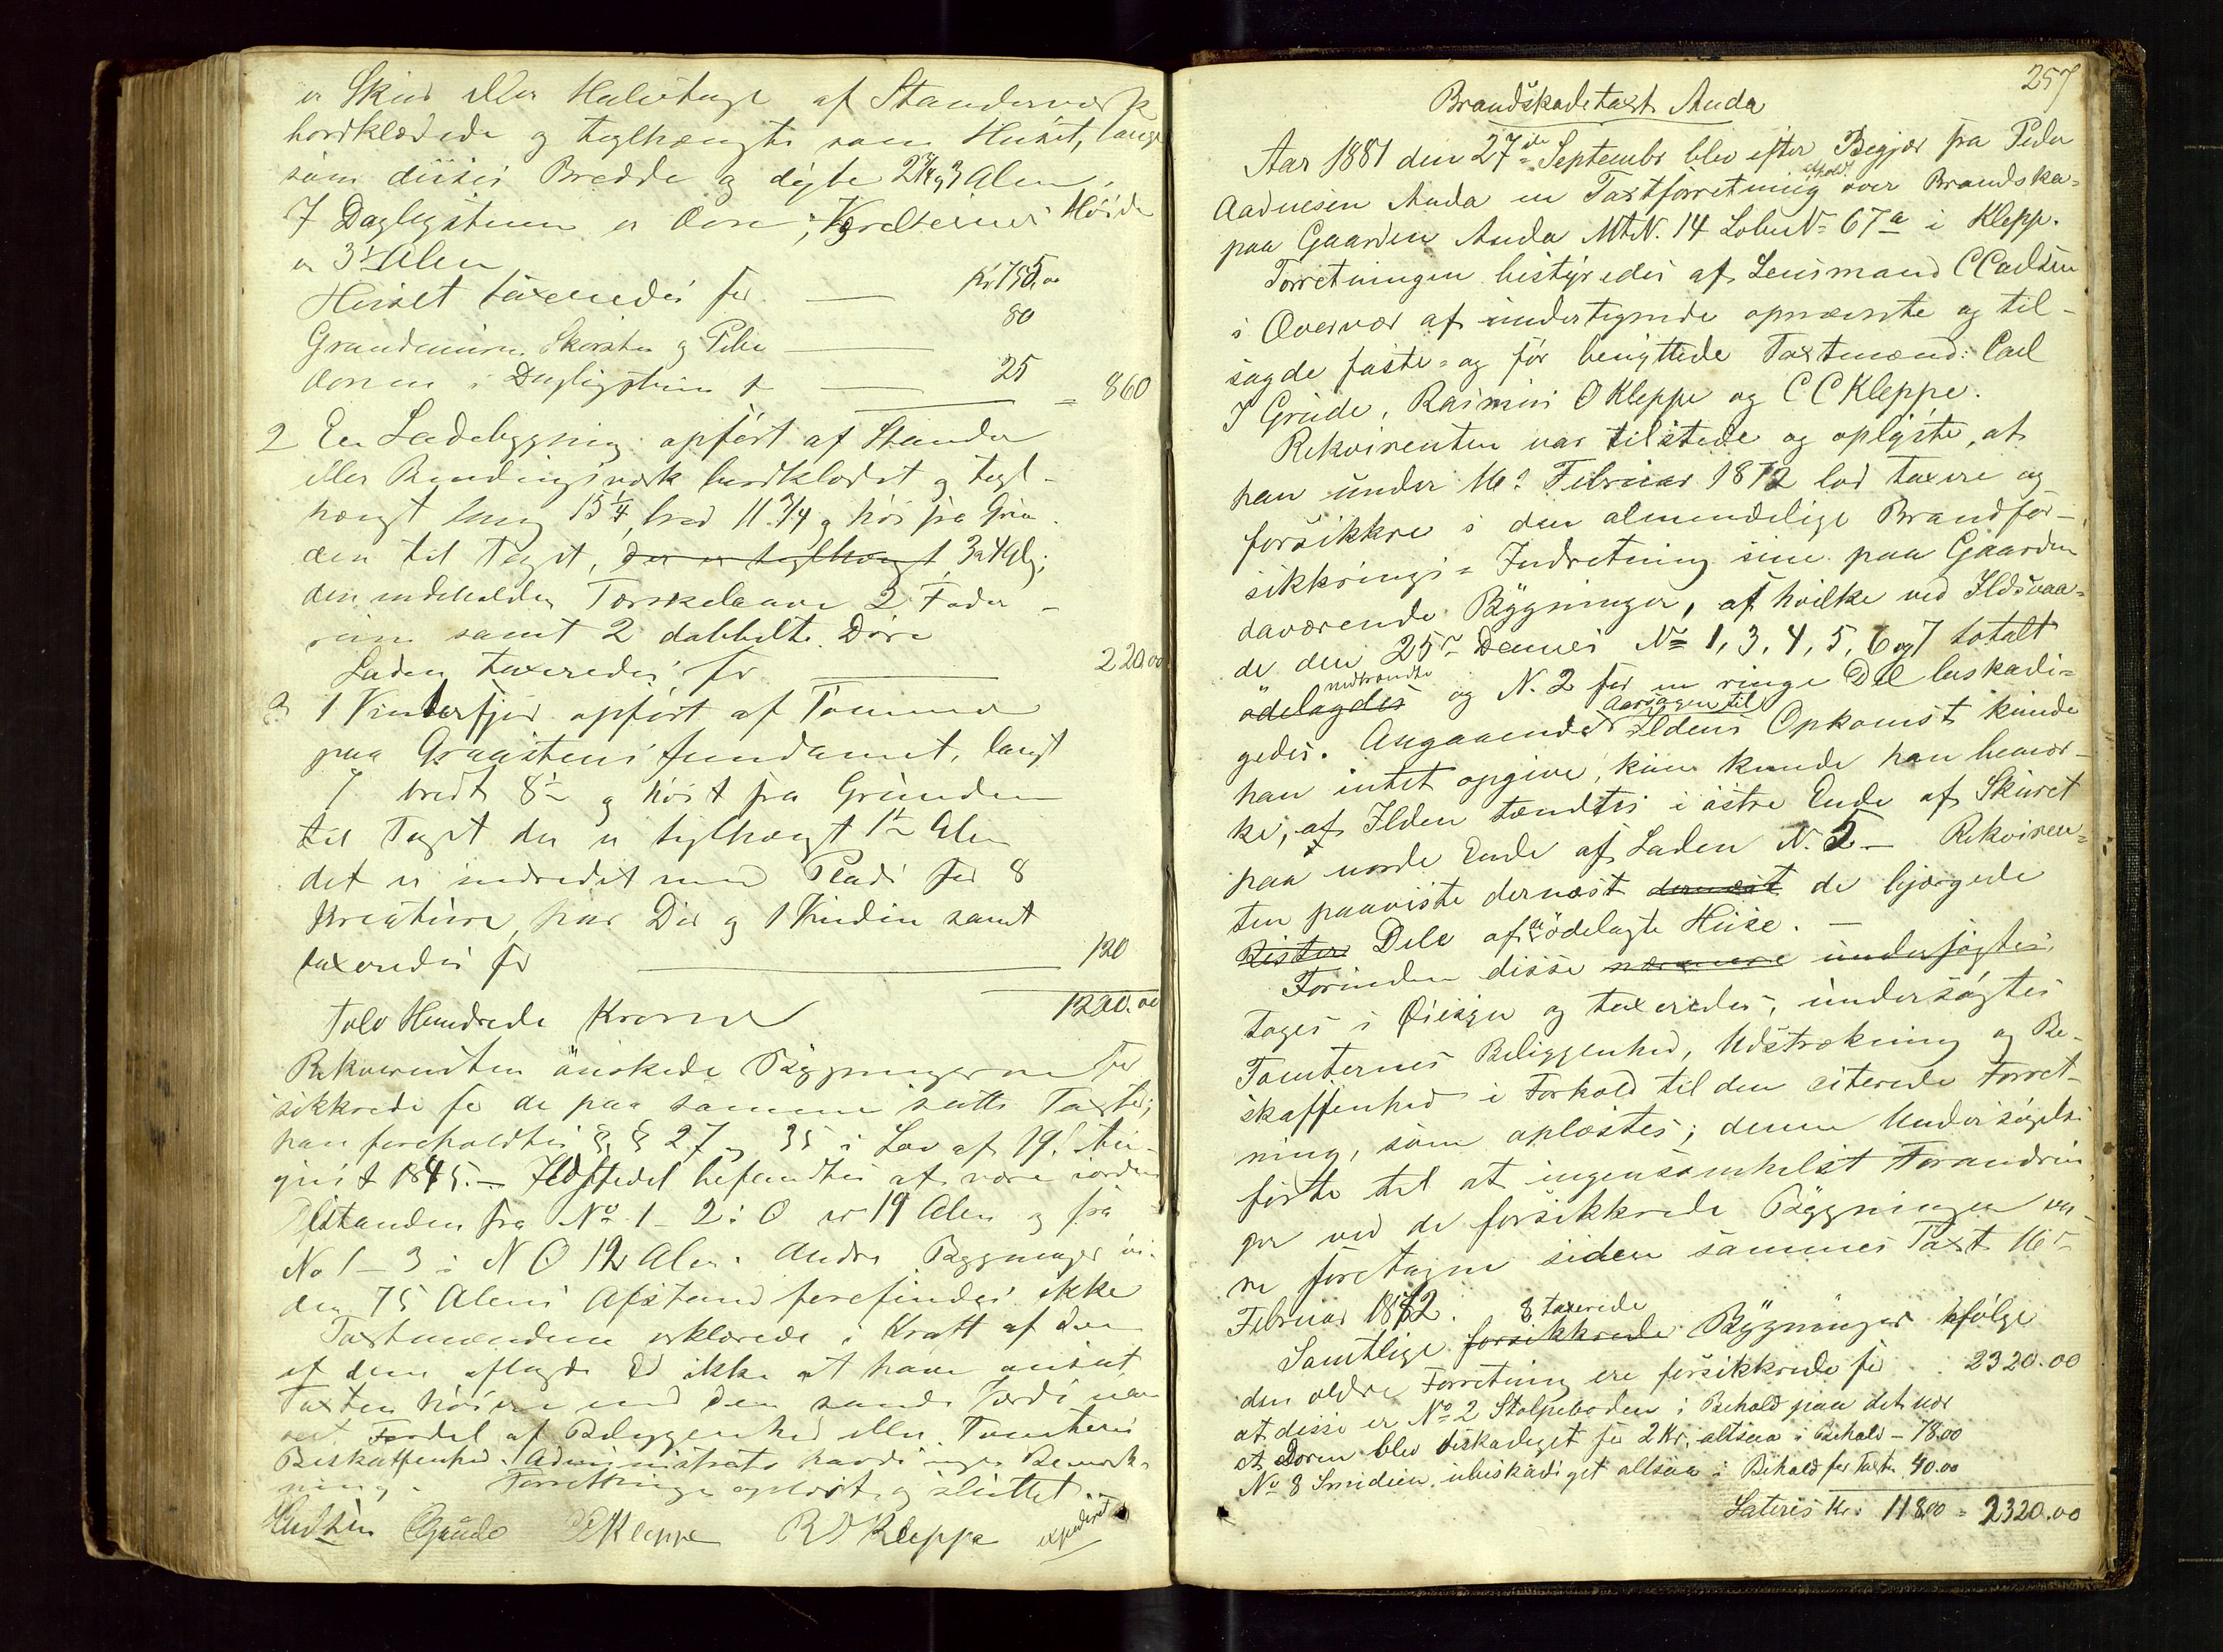 er Skur eller Halvtage af Standerværk
bordklædede og teglhængte som Huset, lange
som dettes Bredde og dybe 2 3/4 og 3 Alen.
I Dagligstuen er Ovn; Høide
er 3 1/2 Alen
Huset taxeredes for — Kr 755.00
Grundmuren, Skorsten og Pibe — 80
Ovnen i Dagligstuen — 25 = 860
2 En Ladebygning opført af Stander
eller Bindingsværk bordklædt og tegl-
hængt lang 15 1/4, bred 11 3/4 og høi fra Grun-
den til Taget, der er teglhængt, 3 a 4 Al;
den indeholder Tærskelaave 2 Foder-
rum samt 2 dobbelte Døre
Laden taxeredes for — 220.00
3 1 Vinterfjøs opført af Tømmer
paa Graastens fundament, langt
7 bredt 8 1/2 og høit fra Grunden
til Taget der er teglhængt 1 1/2 Alen
det er indredet med Plads for 8
Kreature, har Dør og 1 Vindue samt
taxeredes for — 120
Tolv Hundrede Kroner 1200.00
Rekvirenten ønskede Bygningerne for
sikkrede for de paa samme satte Taxter;
han foreholdtes §§ 27 og 35 i Lov af 19. Au-
gust 1845. — Ildstedet befandtes at være i orden
Afstanden fra No 1 - 2 i O er 19 Alen og fra
No 1 - 3 i N O 12 Alen. Andre Bygninger in-
den 75 Alens Afstand forefindes ikke
Taxtmændene erklærede i Kraft af den
af dem aflagde Ed ikke at have ansat
Taxten høiere end den sande Værdi uan
seet Fordel af Beliggenhed eller Tomtens
Beskaffenhed. Administrator havde ingen Bemærk-
ning. Forretningen oplæst og sluttet.
CGrude CCKleppe R O Kleppe expederet
257
Brandskadetaxt Auda
Aar 1881 den 27de Septembr blev efter Begjær fra Peder
Aadnesen Auda en Taxtforretning afholdt over Brandska-
paa Gaarden Auda Mt.N. 14 Løbe No 67a i Klepp.
Forretningen bestyredes af Lensmand C Carlsen
i Overvær af undertegnede opnævnte og til-
sagde faste- og før benyttede Taxtmænd: Carl
I Grude, Rasmus O Kleppe og C C Kleppe.
Rekvirenten var tilstede og oplyste, at
han under 16. Februar 1872 lod taxere og
forsikkre i den almindelige Brandfor-
sikkrings-Indretning sine paa Gaarden
daværende Bygninger, af hvilke ved Ildsvaa-
de den 25de Dennes No 1, 3, 4, 5, 6 og 7 totalt
ödelagdes nedbrændte og N. 2 for en ringe Del beskadi-
gedes. Angaaende Aarsagen til Ildens Opkomst kunde
han intet opgive, kun kunde han bemær-
ke, at Ilden tændtes i östre Ende af Skuret
paa nordre Ende af Laden N. 5 — Rekviren-
ten paaviste dernæst dernæst de bjærgede
Rester Dele af de ödelagte Huse. —
Forinden disse nærmere undersøgtes
toges i Öiesyn og taxeredes, undersögtes
Tomternes Beliggenhed, Udstrækning og Be-
skaffenhed i Forhold til den citerede Forret-
ning, som oplæstes; denne Undersögelse
förte til at ingensomhelst Forandrin
ger ved de forsikkrede Bygninger va-
re foretagne siden sammes Taxt 16de
Februar 1872.
Samtlige forsikkrede 8 taxerede Bygninger ifølge
den ældre Forretning ere forsikkrede for 2320.00
af disse er No 2 Stolpeboden i Behold paa det nær
at Doren blev beskadiget for 2 Kr. altsaa i Behold - 78.00
No 8 Smidien ubeskadiget altsaa i Behold for Taxten 40.00
Lateris Kr. 118.00 = 2320.00